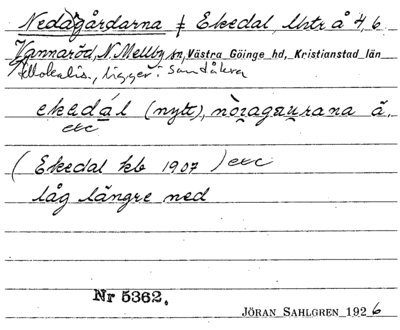 Nedagårdarna ‡ Ekedal, Mtr å 4, 6
Vannaröd, N. Mellby sn, Västra Göinge hd, Kristianstad län
ligger i Sandåkra
ekedál (nytt), å.
etc
(Ekedal kb 1907) etc
låg längre ned
Nr 5362.
JÖRAN SAHLGREN 1926